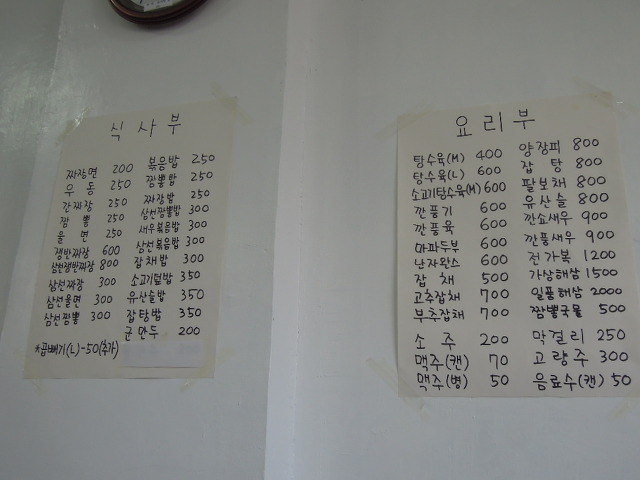 식사부
짜장면 200 볶음밥 250
우동 250 짬뽕밥 250
간짜장 250 짜장밥 250
짬뽕 250 삼선짬뽕밥 300
울면 250 새우볶음밥 300
쟁반짜장 600 삼선볶음밥 300
삼선쟁반짜장 800 잡채밥 300
삼선짜장 300 소고기덮밥 350
삼선울면 300 유산슬밥 350
삼선짬뽕 300 잡탕밥 350
군만두 200
*곱빼기(L)-50(추가)
요리부
탕수육(M) 400 양장피 800
탕수육(L) 600 잡탕 800
소고기탕수육(M) 600 팔보채 800
깐풍기 600 유산슬 800
깐풍육 600 깐쇼새우 900
마파두부 600 깐풍새우 900
난자완스 600 전가복 1200
잡채 500 가상해삼 1500
고추잡채 700 일품해삼 2000
부추잡채 700 짬뽕국물 500
소주 200 막걸리 250
맥주(캔) 70 고량주 300
맥주(병) 50 음료수(캔) 50